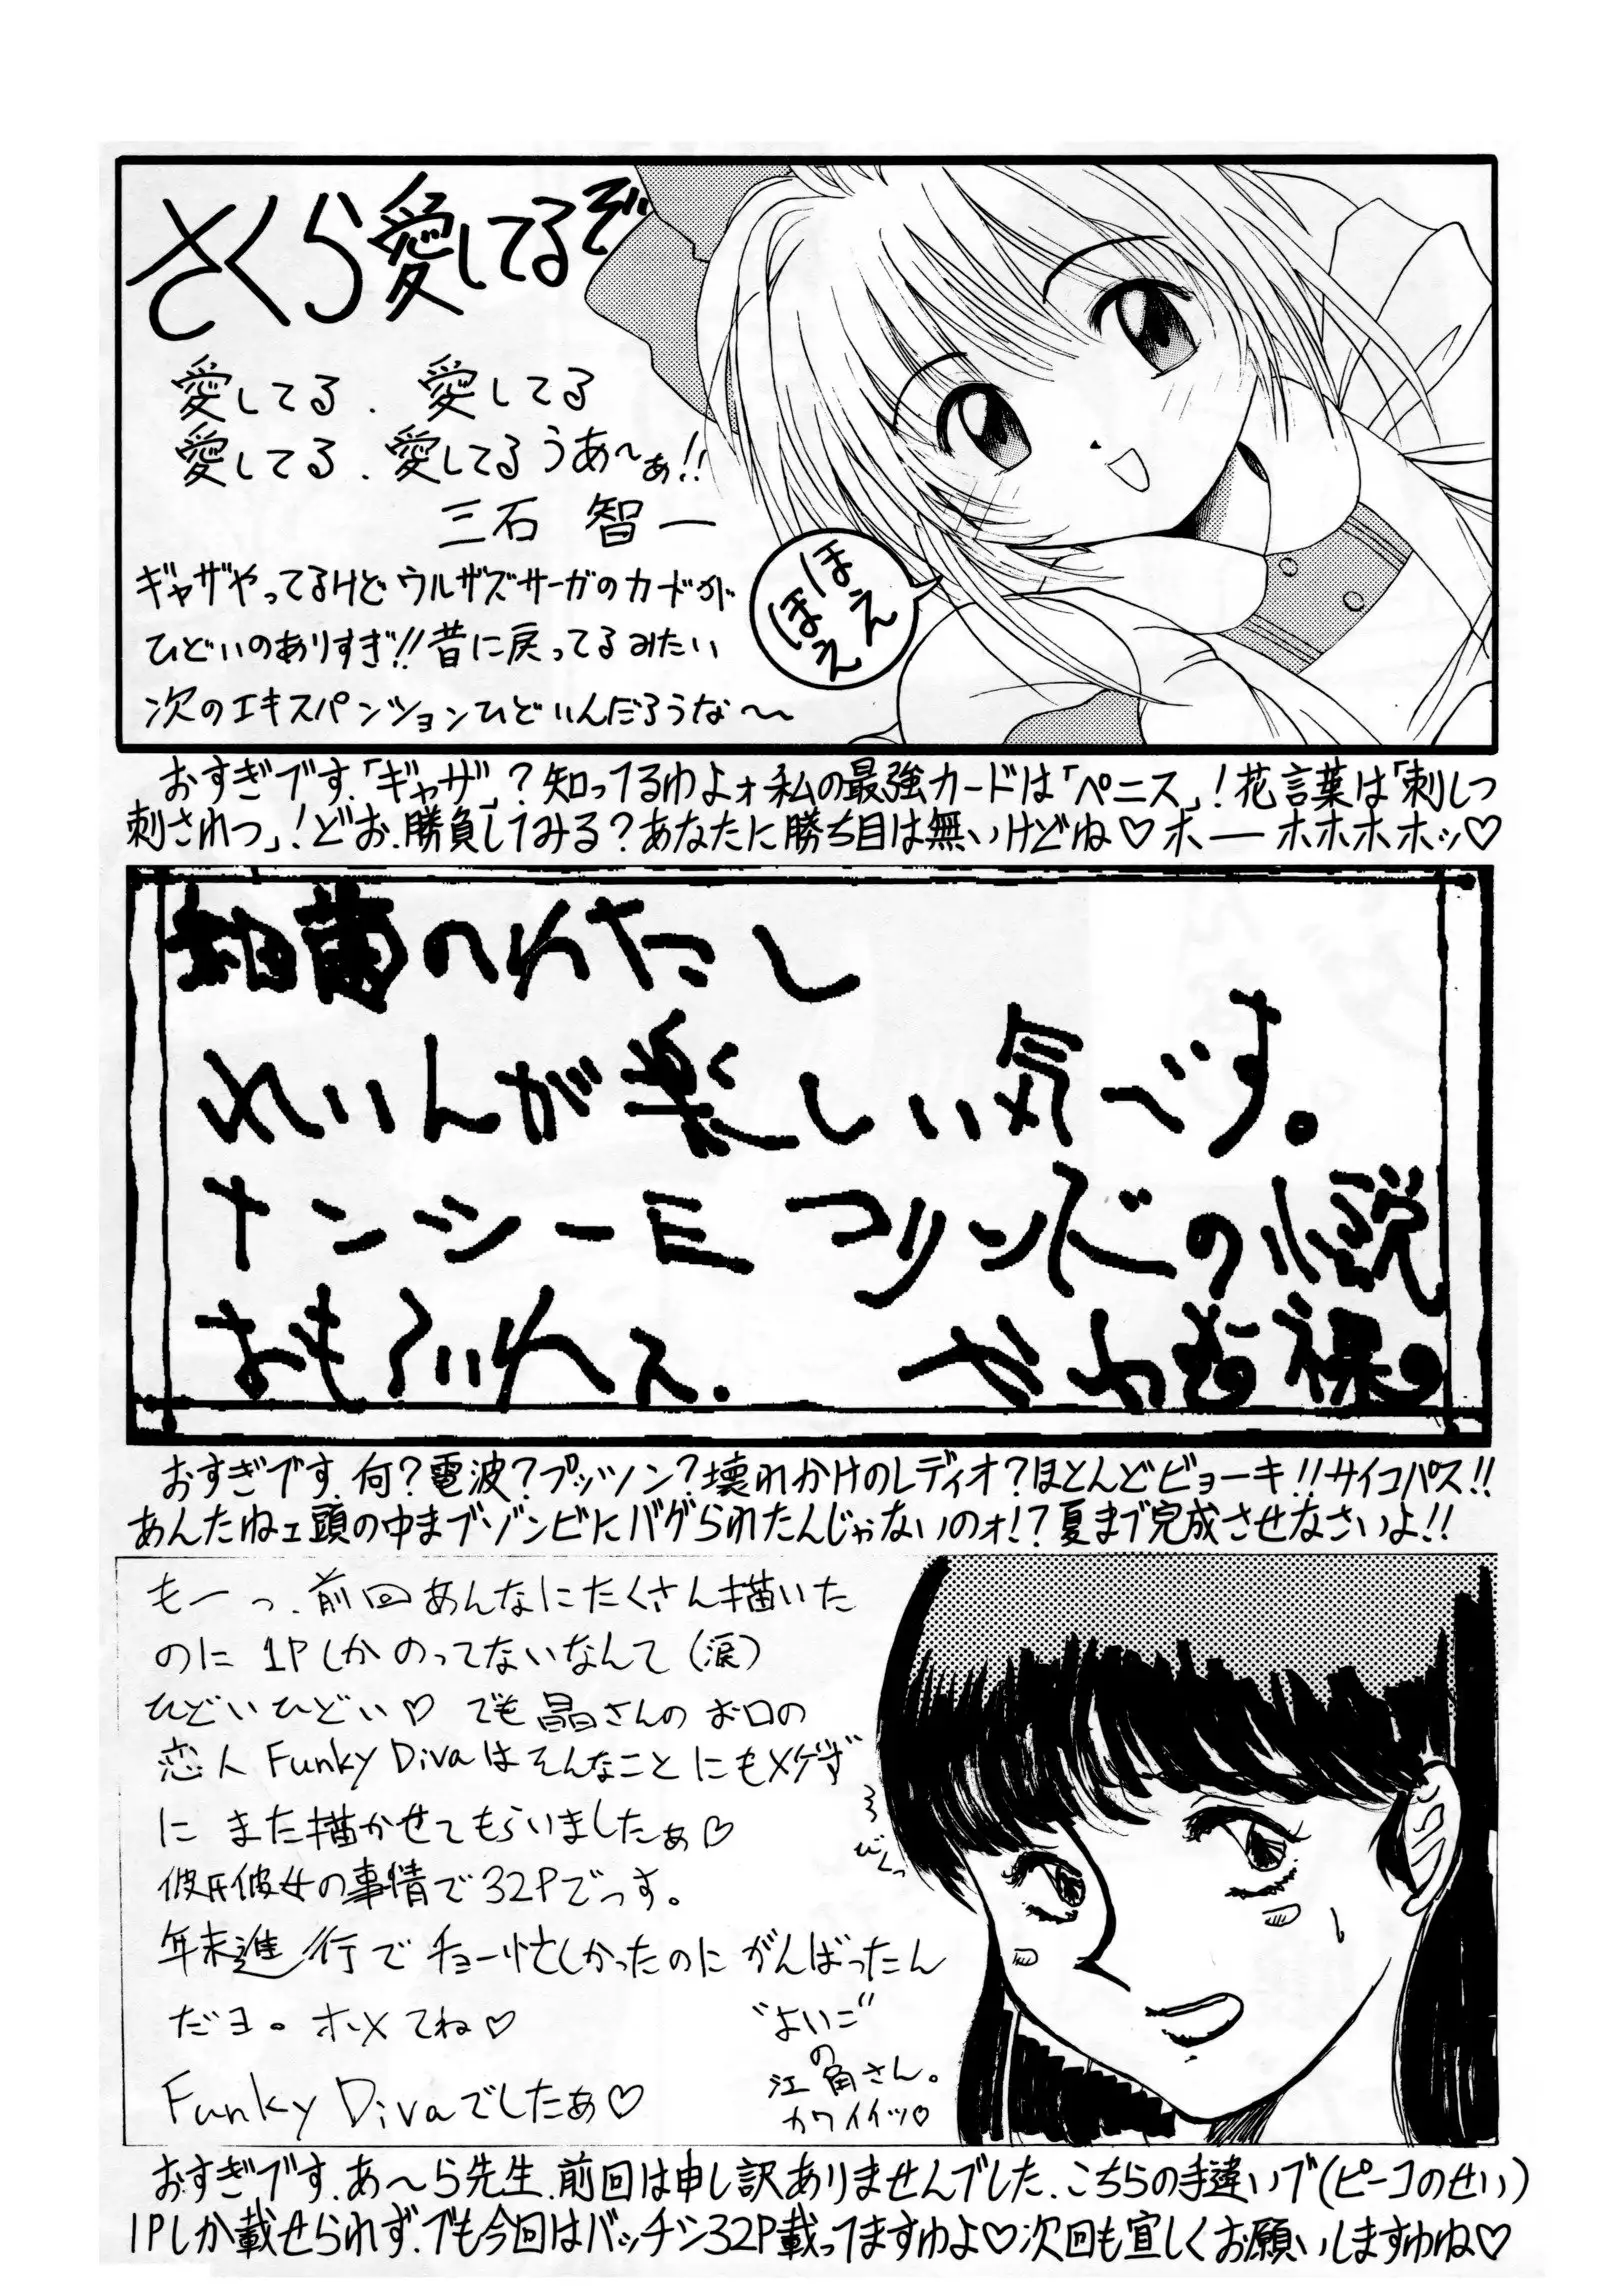 さくら愛してるぞ
愛してる、愛してる
愛してる、愛してるうあ〜ぁ!!
三石 智一
ギャザやってるけどウルザズサーガのカードが
ひどいのありすぎ!!昔に戻ってるみたい
次のエキスパンションひどいんだろうな〜〜
ほえ
ほえ
おすぎです.「ギャザ」?知ってるわよォ私の最強カードは「ペニス」!花言葉は「刺しつ
刺されつ」!どお、勝負してみる?あなたに勝ち目は無いけどね♡ホーホホホホッ♡
細菌のわたし
れいんが楽しい気〜です。
ナンシーミコリンズの小説
おもろいねえ.
おすぎです.何?電波?プッツン?壊れかけのレディオ?ほとんどビョーキ!!サイコパス!!
あんたねェ頭の中までゾンビにバグられたんじゃないのォ!?夏まで完成させなさいよ!!
もーっ、前回あんなにたくさん描いた
のに1Pしかのってないなんて(涙)
ひどいひどい♡ でも晶さんのお口の
恋人Funky Divaはそんなことにもメゲず
に また描かせてもらいましたぁ♡
彼氏彼女の事情で32Pでっす。
年末進行でチョー忙しかったのにがんばったん
だヨ。ホメてね♡
Funky Divaでしたぁ♡
びくっ
"よいこ"
の
江角さん。
カワイイッ♡
おすぎです.あ〜ら先生、前回は申し訳ありませんでした.こちらの手違いで(ピーコのせい)
1Pしか載せられず.でも今回はバッチシ32P載ってますわよ♡次回も宜しくお願いしますわね♡